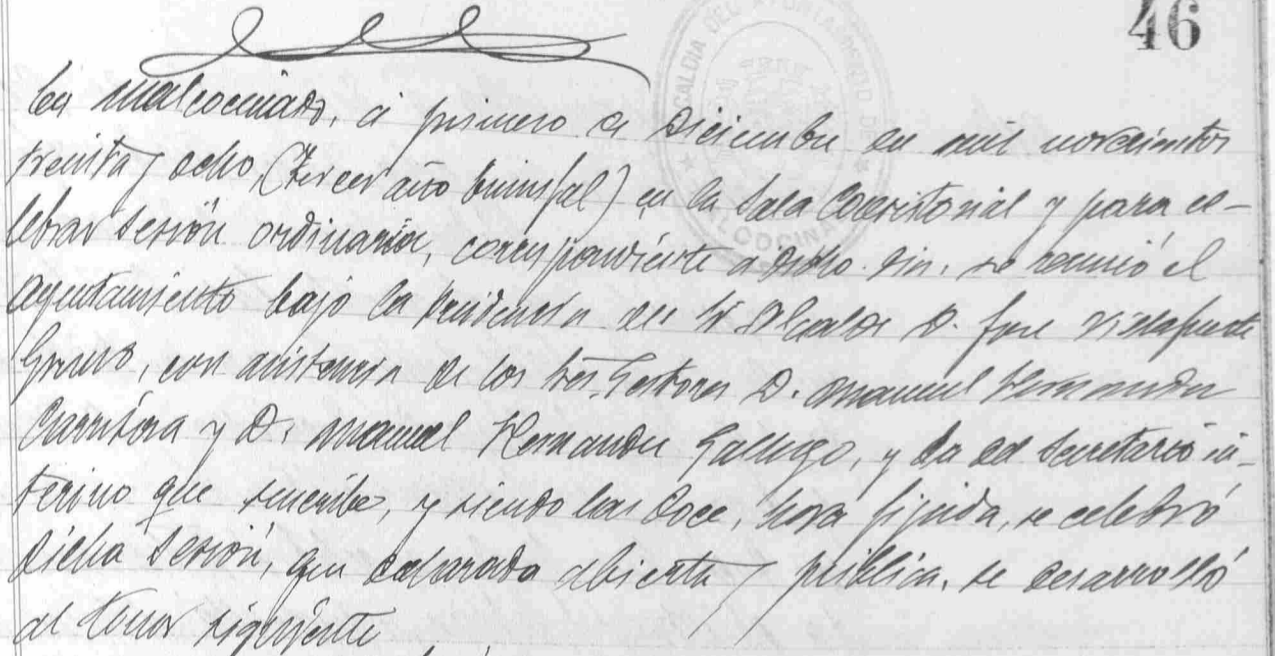 46
ALCALDIA DEL AYUNTAMIENTO DE MALCOCINADO
En Malcocinado, á primero de Diciembre de mil novecientos
treinta y ocho, (Tercer año triunfal) en la Sala Consistorial y para ce-
lebrar sesión ordinaria, correspondiente a dicho dia, se reunió el
Ayuntamiento bajo la Presidencia del Sr Alcalde D. José
con asistencia de los Sres. Gestores D. Manuel Hernandez
Carritera y D. Manuel Hernandez Gallego, y la del Secretario in-
terino que suscribe, y siendo las doce, hora fijada, se celebró
dicha sesión, que declarada abierta y publica, se desarrolló
al tenor siguiente